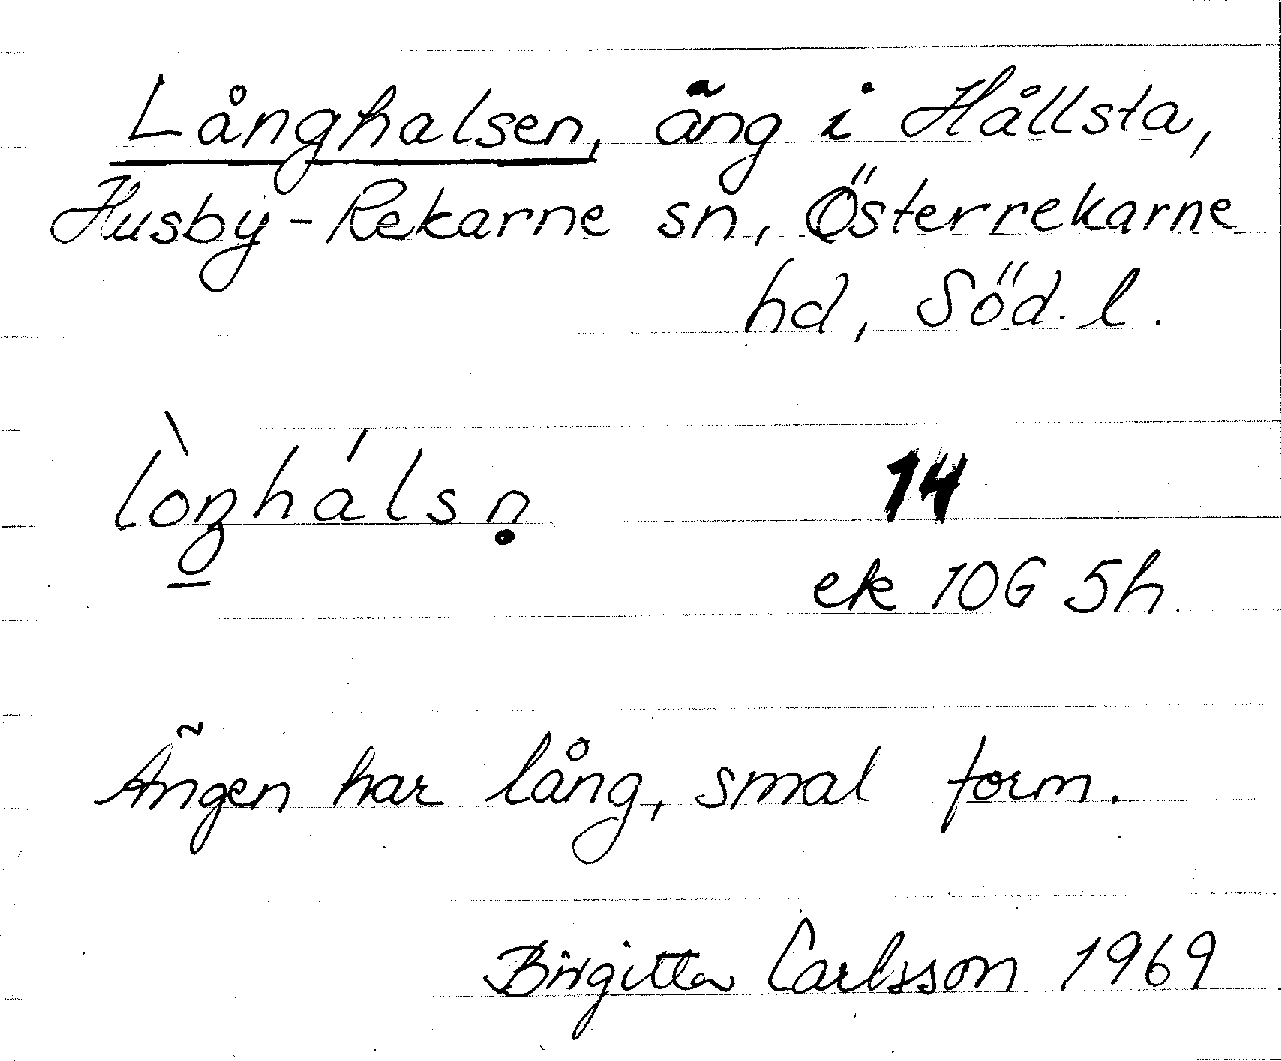 Långhalsen, äng i Hållsta,
Husby-Rekarne sn, Österrekarne
hd, Söd. l.
lòŋhálsṇ 14
ek 10G 5h
Ängen har lång, smal form.
Birgitta Carlsson 1969